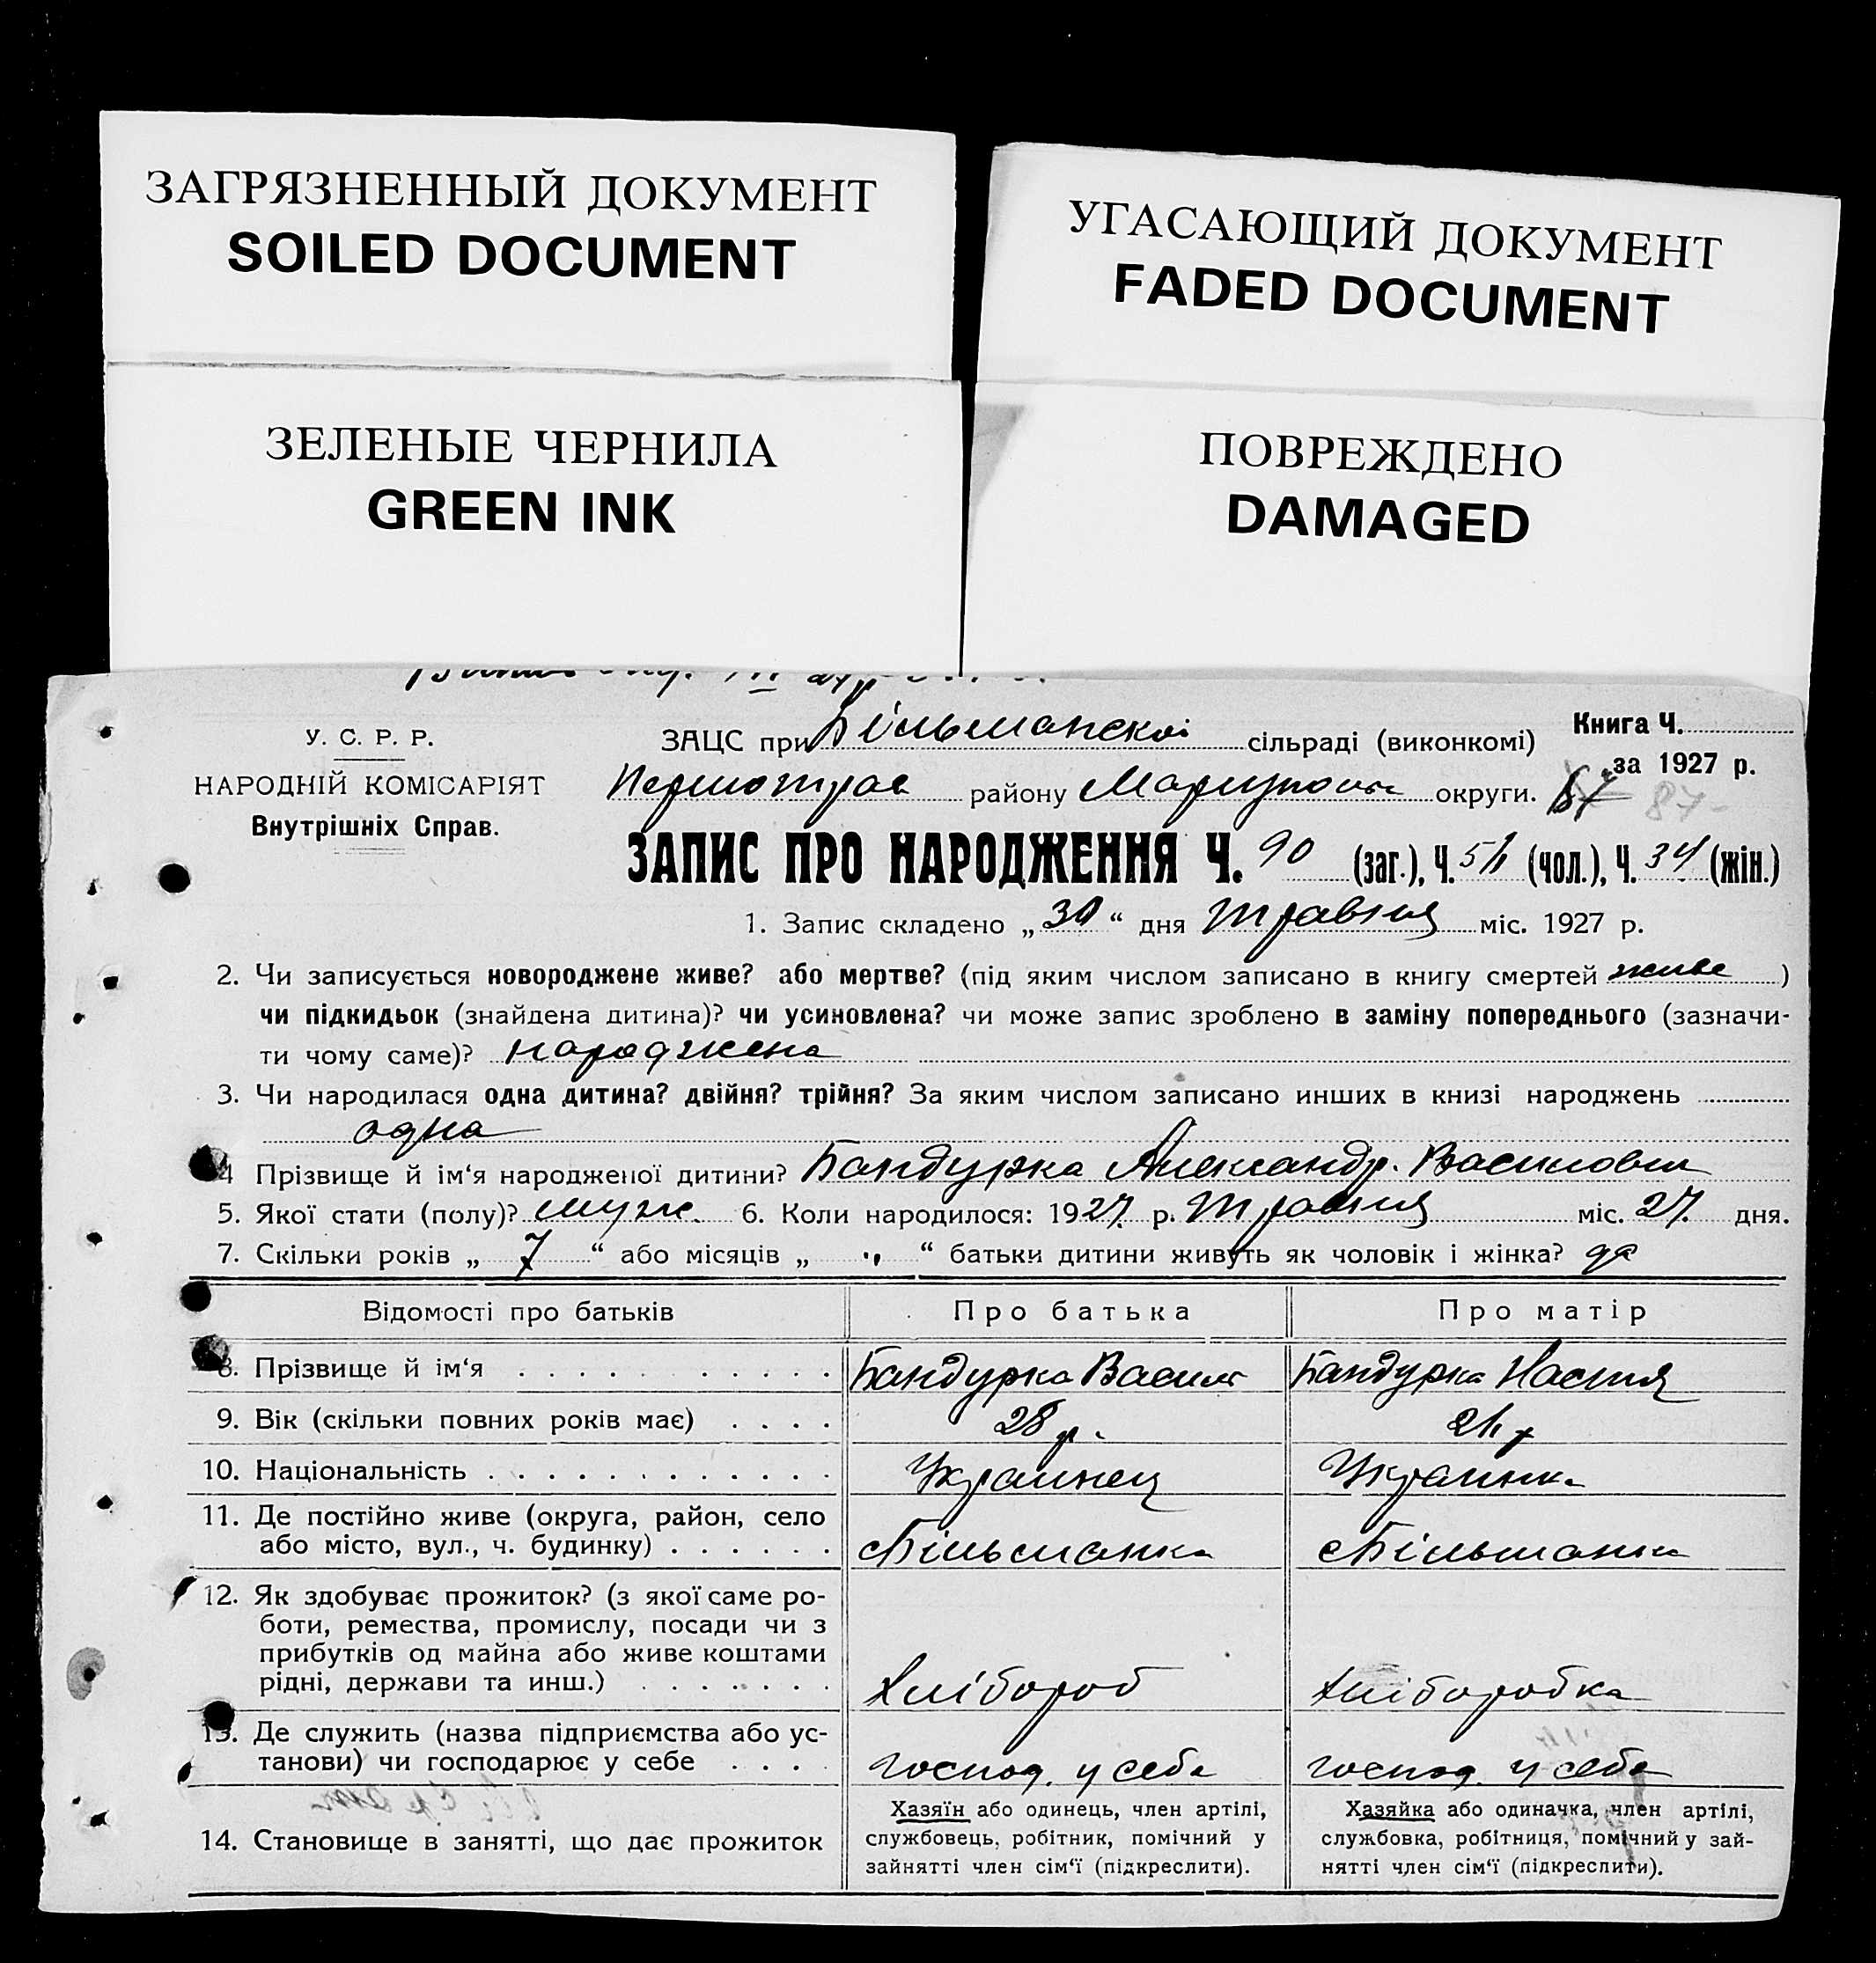 ЗАГРЯЗНЕННЫЙ ДОКУМЕНТ
SOILED DOCUMENT
УГАСАЮЩИЙ ДОКУМЕНТ
FADED DOCUMENT
ЗЕЛЕНЫЕ ЧЕРНИЛА
GREEN INK
ПОВРЕЖДЕНО
DAMAGED
У. С. Р. Р.
НАРОДНІЙ КОМІСАРІЯТ
Внутрішніх Справ.
ЗАЦС при Більманскоі сільраді (виконкомі)
Книга Ч.
за 1927 р.
району округи. 87
ЗАПИС ПРО НАРОДЖЕННЯ Ч. 90 (заг.), Ч. (чол.), Ч. 34 (жін.)
1. Запис складено „30“ дня травня міс. 1927 р.
2. Чи записується новороджене живе? або мертве? (під яким числом записано в книгу смертей живе)
чи підкидьок (знайдена дитина)? чи усиновлена? чи може запис зроблено в заміну попереднього (зазначи-
ти чому саме)? народжена
3. Чи народилася одна дитина? двійня? трійня? За яким числом записано инших в книзі народжень
одна
4 Прізвище й ім‘я народженої дитини? Бандурка Александр. Василович
5. Якої стати (полу)? муж. 6. Коли народилося: 1927 р. травня міс. 27. дня.
7. Скільки років „ 7 “ або місяців „ „ “ батьки дитини живуть як чоловік і жінка? да
Відомості про батьків
Про батька
Про матір
8. Прізвище й ім‘я
Бандурка Василь
Бандурка Настя
9. Вік (скільки повних років має)
28 р.
10. Національність
Украинец
Украинка
11. Де постійно живе (округа, район, село
або місто, вул., ч. будинку)
с Більманка
с Більманка
12. Як здобуває прожиток? (з якої саме ро-
боти, ремества, промислу, посади чи з
прибутків од майна або живе коштами
рідні, держави та инш.)
Хлібороб
Хліборобка
13. Де служить (назва підприємства або ус-
танови) чи господарює у себе
господ. у себе
господ. у себе
14. Становище в занятті, що дає прожиток
Хазяїн або одинець, член артілі,
службовець, робітник, помічний у
зайнятті член сім‘ї (підкреслити).
Хазяйка або одиначка, член артілі,
службовка, робітниця, помічний у зай-
нятті член сім‘ї (підкреслити).